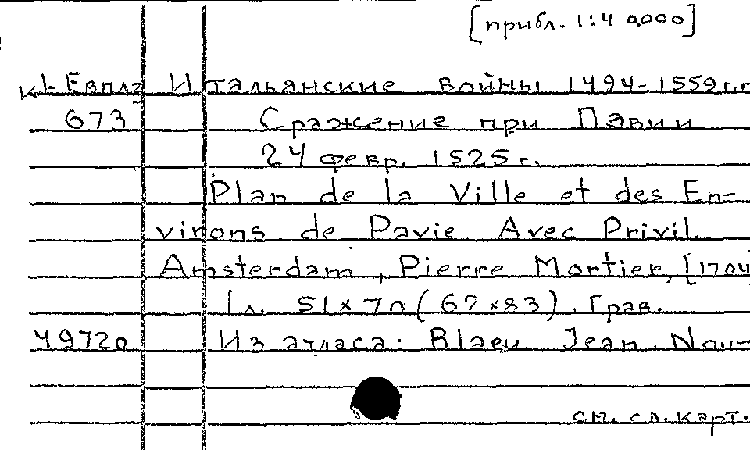 [прибл. 1:40000]
к1-Евплг Итальянские войны 1494-1559г.г
673 Сражение при Павии
24 февр. 1525г.
Plan de la Ville et des En-
virons de Pavie Avec Privil.
Amsterdam, Pierre Mortier, [1704
1л. 51x70(67x83). Грав.
Из атласа: Blaeu Jean. Nou-
см. сл. карт.